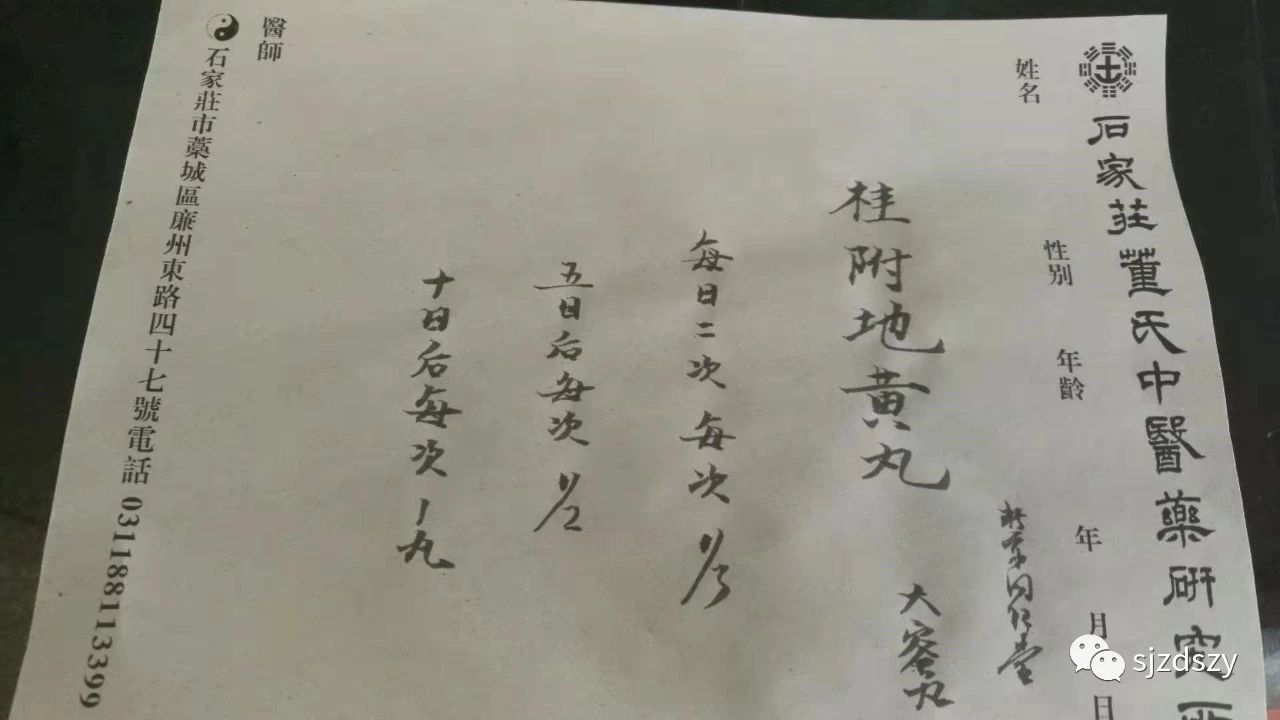 石家莊董氏中醫藥研究
姓名 性別 年齡 年 月 日
北京同仁堂
桂附地黄丸 大蜜丸
每日二次每次1/3
五日后每次1/2
十日后每次1丸
醫師
石家莊市藁城區廉州東路四十七號電話 031188113399
sjzdszy